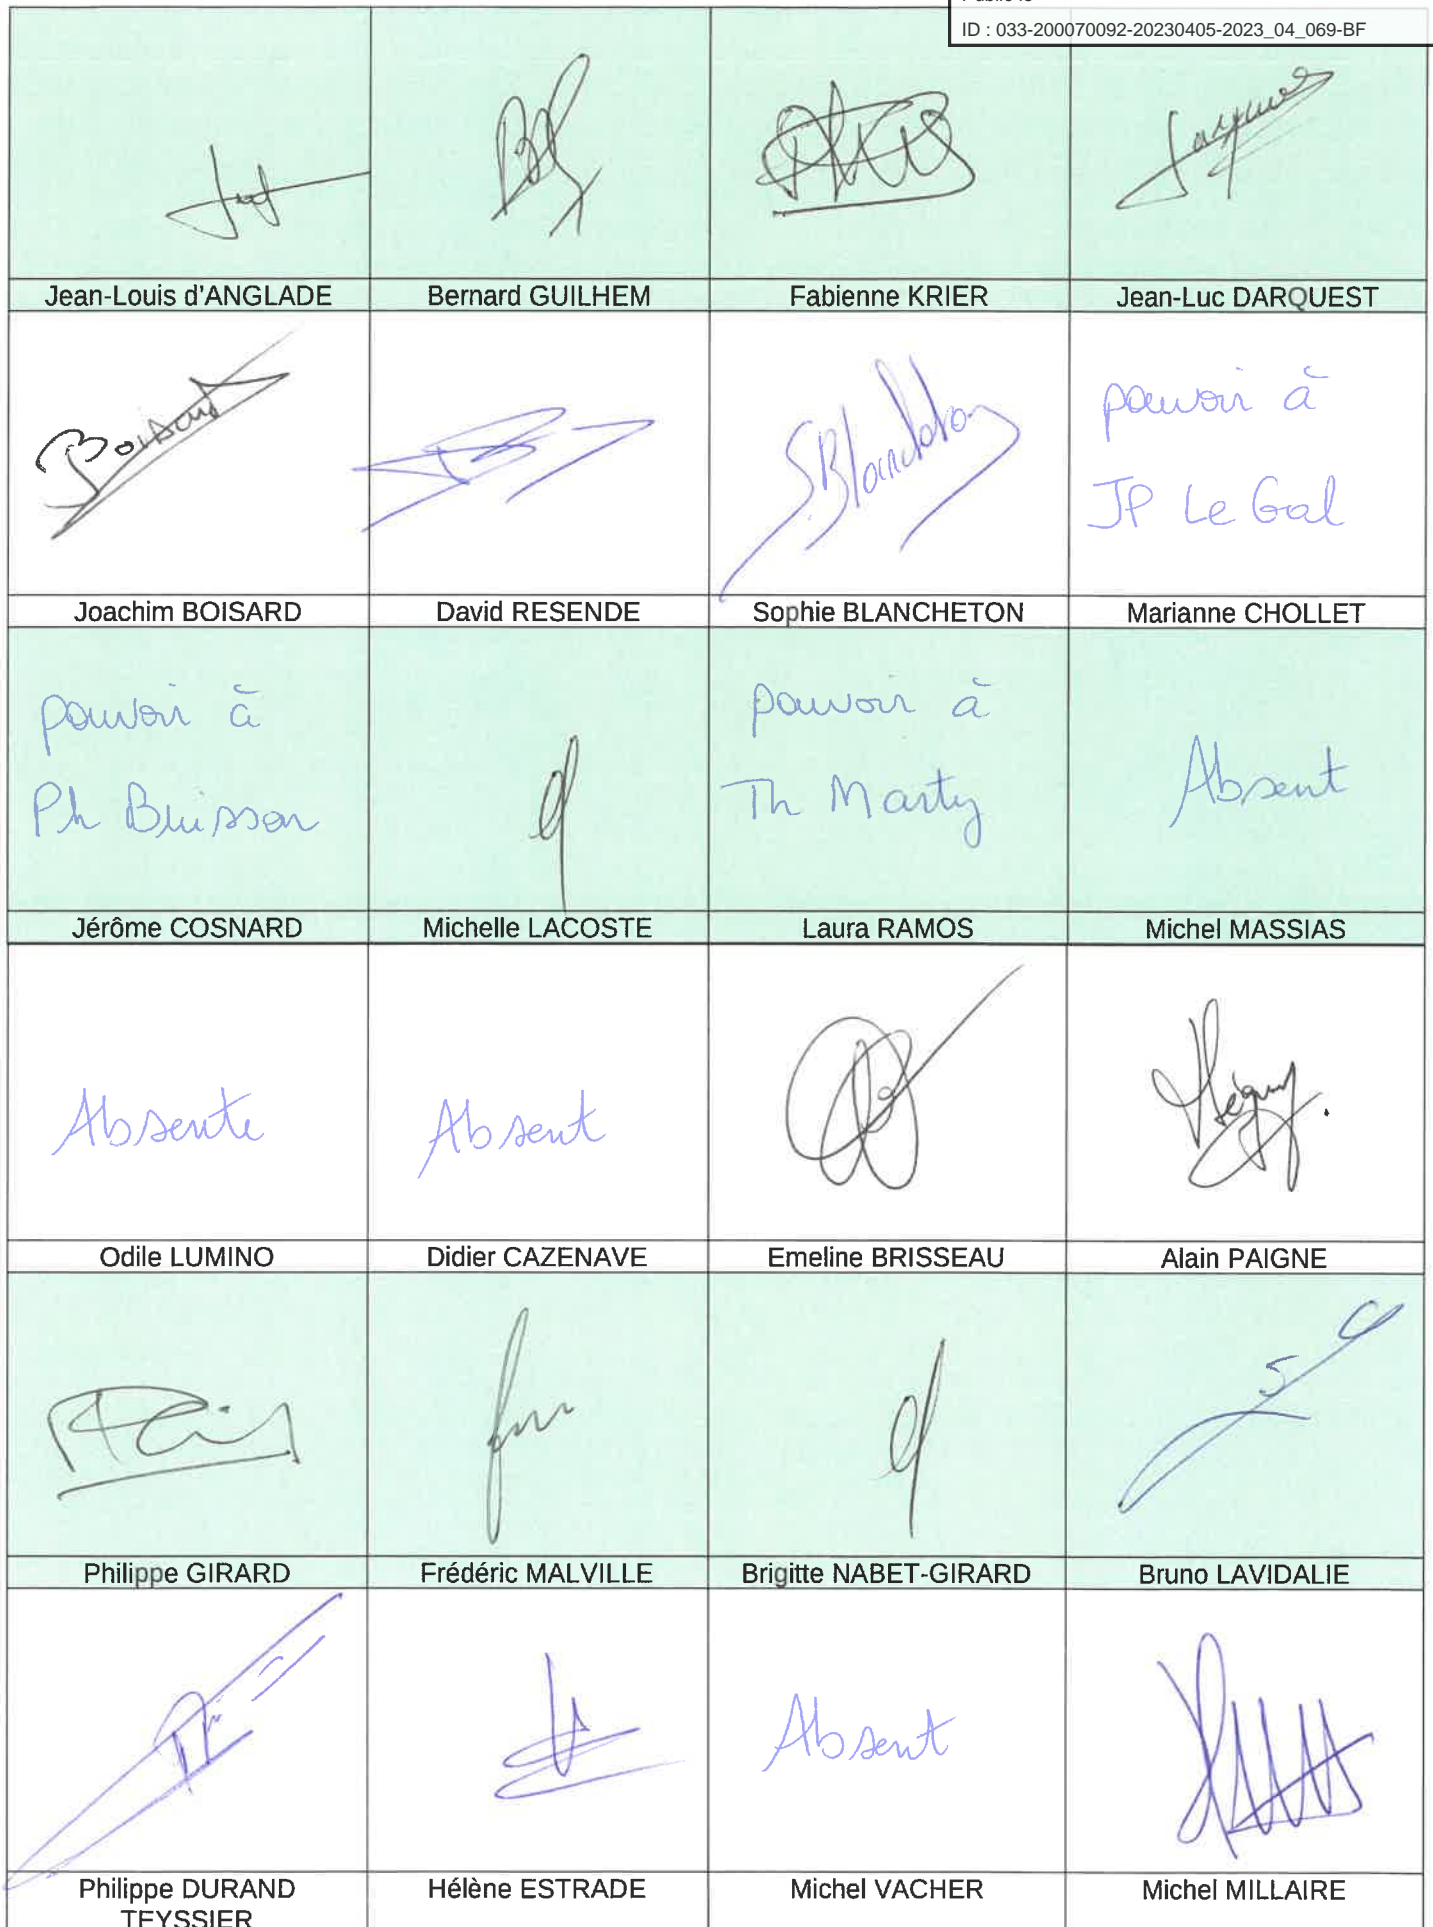 ID : 033-200070092-20230405-2023_04_069-BF
Jean-Louis d'ANGLADE
Bernard GUILHEM
Fabienne KRIER
Jean-Luc DARQUEST
Boisard
S.Blancheton
pouvoir à
JP Le Gal
Joachim BOISARD
David RESENDE
Sophie BLANCHETON
Marianne CHOLLET
pouvoir à
Ph Buisson
pouvoir à
Th Marty
Absent
Jérôme COSNARD
Michelle LACOSTE
Laura RAMOS
Michel MASSIAS
Absente
Absent
Odile LUMINO
Didier CAZENAVE
Emeline BRISSEAU
Alain PAIGNE
Philippe GIRARD
Frédéric MALVILLE
Brigitte NABET-GIRARD
Bruno LAVIDALIE
Absent
Philippe DURAND
TEYSSIER
Hélène ESTRADE
Michel VACHER
Michel MILLAIRE